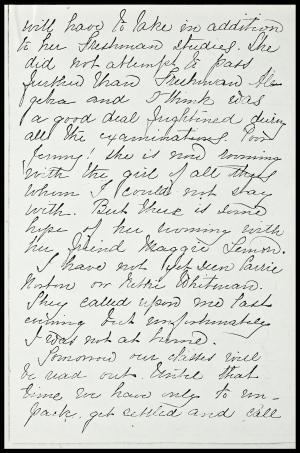 will have to take in addition
to her Freshman studies. She
did not attempt to pass
further than Freshman Al-
gebra and I think was
a good deal frightened during
all the examinations. Poor
Jenny! she is now rooming
with the girl of all others
whom I could not stay
with. But there is some
hope of her rooming with
her friend Maggie
I have not yet seen Carrie
Norton or Nettie Whitman.
They called upon me last
evening but unfortunately
I was not at home.
Tomorrow our classes will
be read out. Until that
time we have only to un-
pack, get settled and call